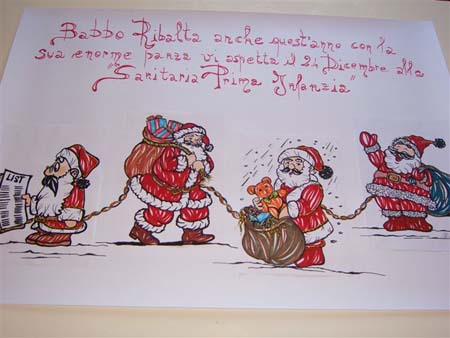 Babbo Ribalta anche quest'anno con la
sua enorme panza vi aspetta il 24 Dicembre alla
"Sanitaria Prima Infanzia"
LIST